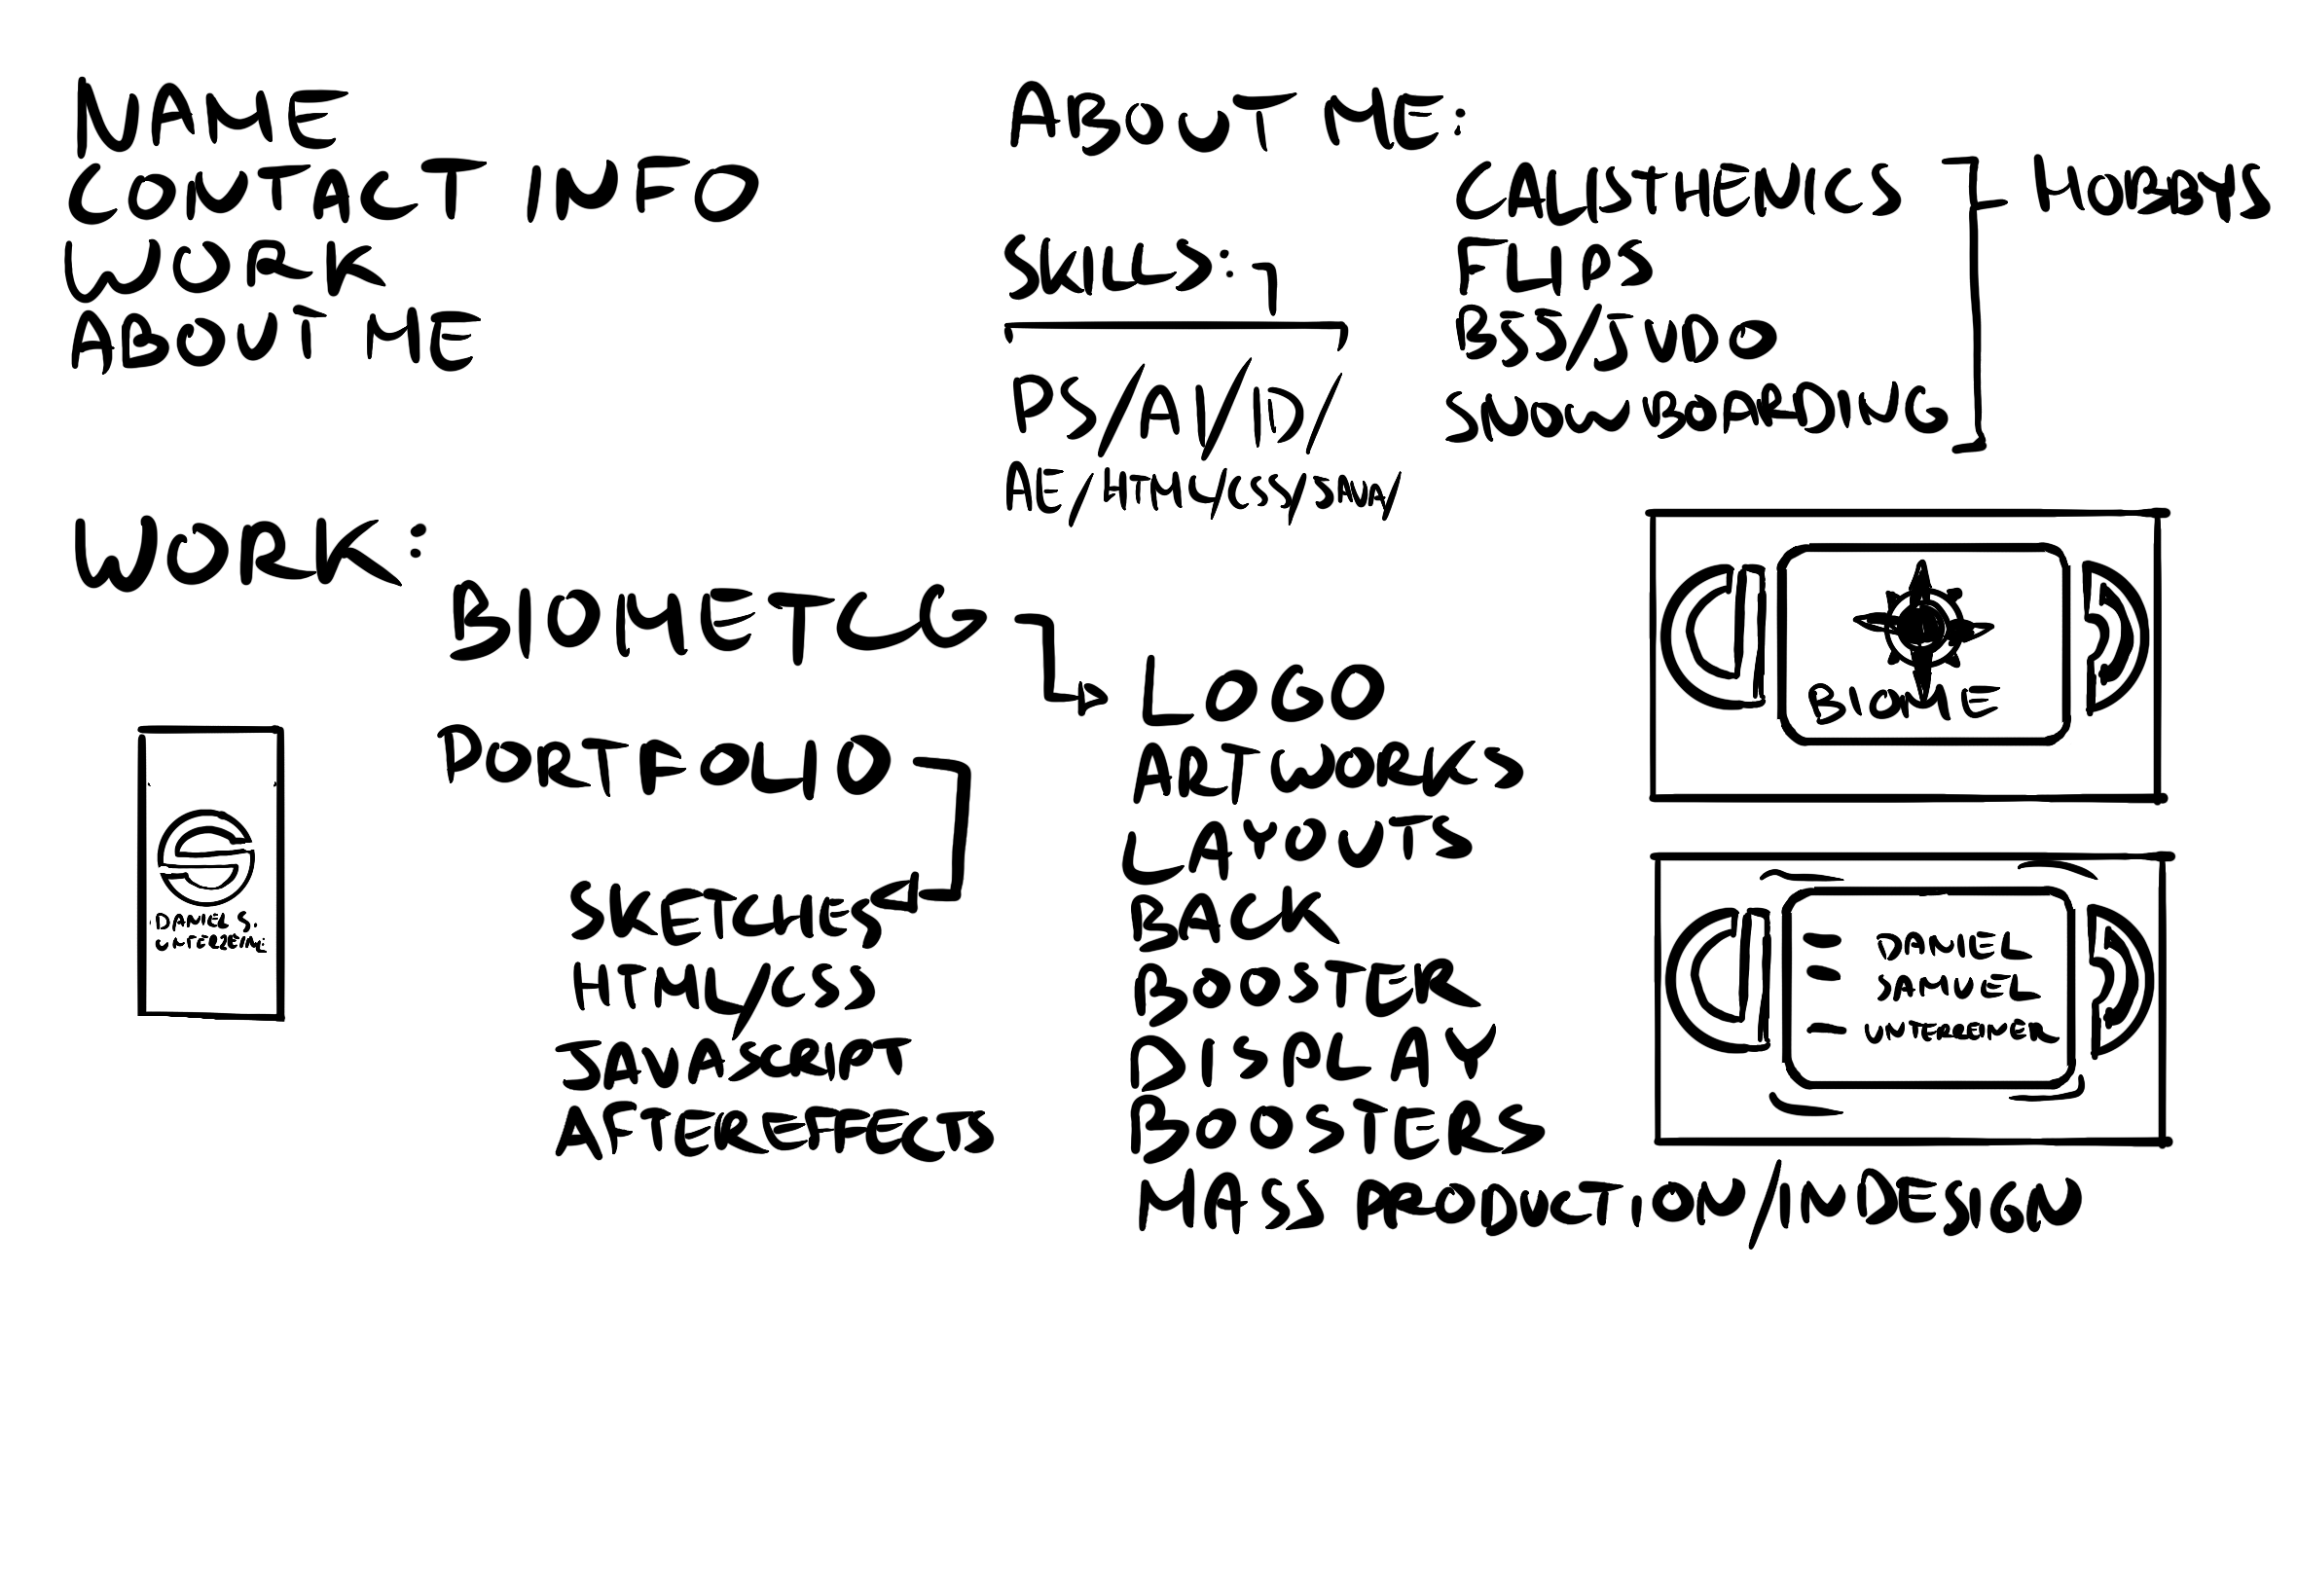 NAME
CONTACT INFO
WORK
ABOUT ME
ABOUT ME:
SKILLS:
PS/AI/ID/
AE/HTML/CSS/JAVA/
CALISTHENICS
FLIPS
BJJ/JUDO
SNOWBOARDING
HOBBYS
WORK:
BIOMETCG
LOGO
ARTWORKS
LAYOUTS
BACK
BOOSTER
DISPLAY
BOOSTERS
MASS PRODUCTION/INDESIGN
PORTFOLIO
SKETCHES
HTML/CSS
JAVASCRIPT
AFTEREFFECTS
DANIEL S.
BIOME
DANIEL
SAMUEL